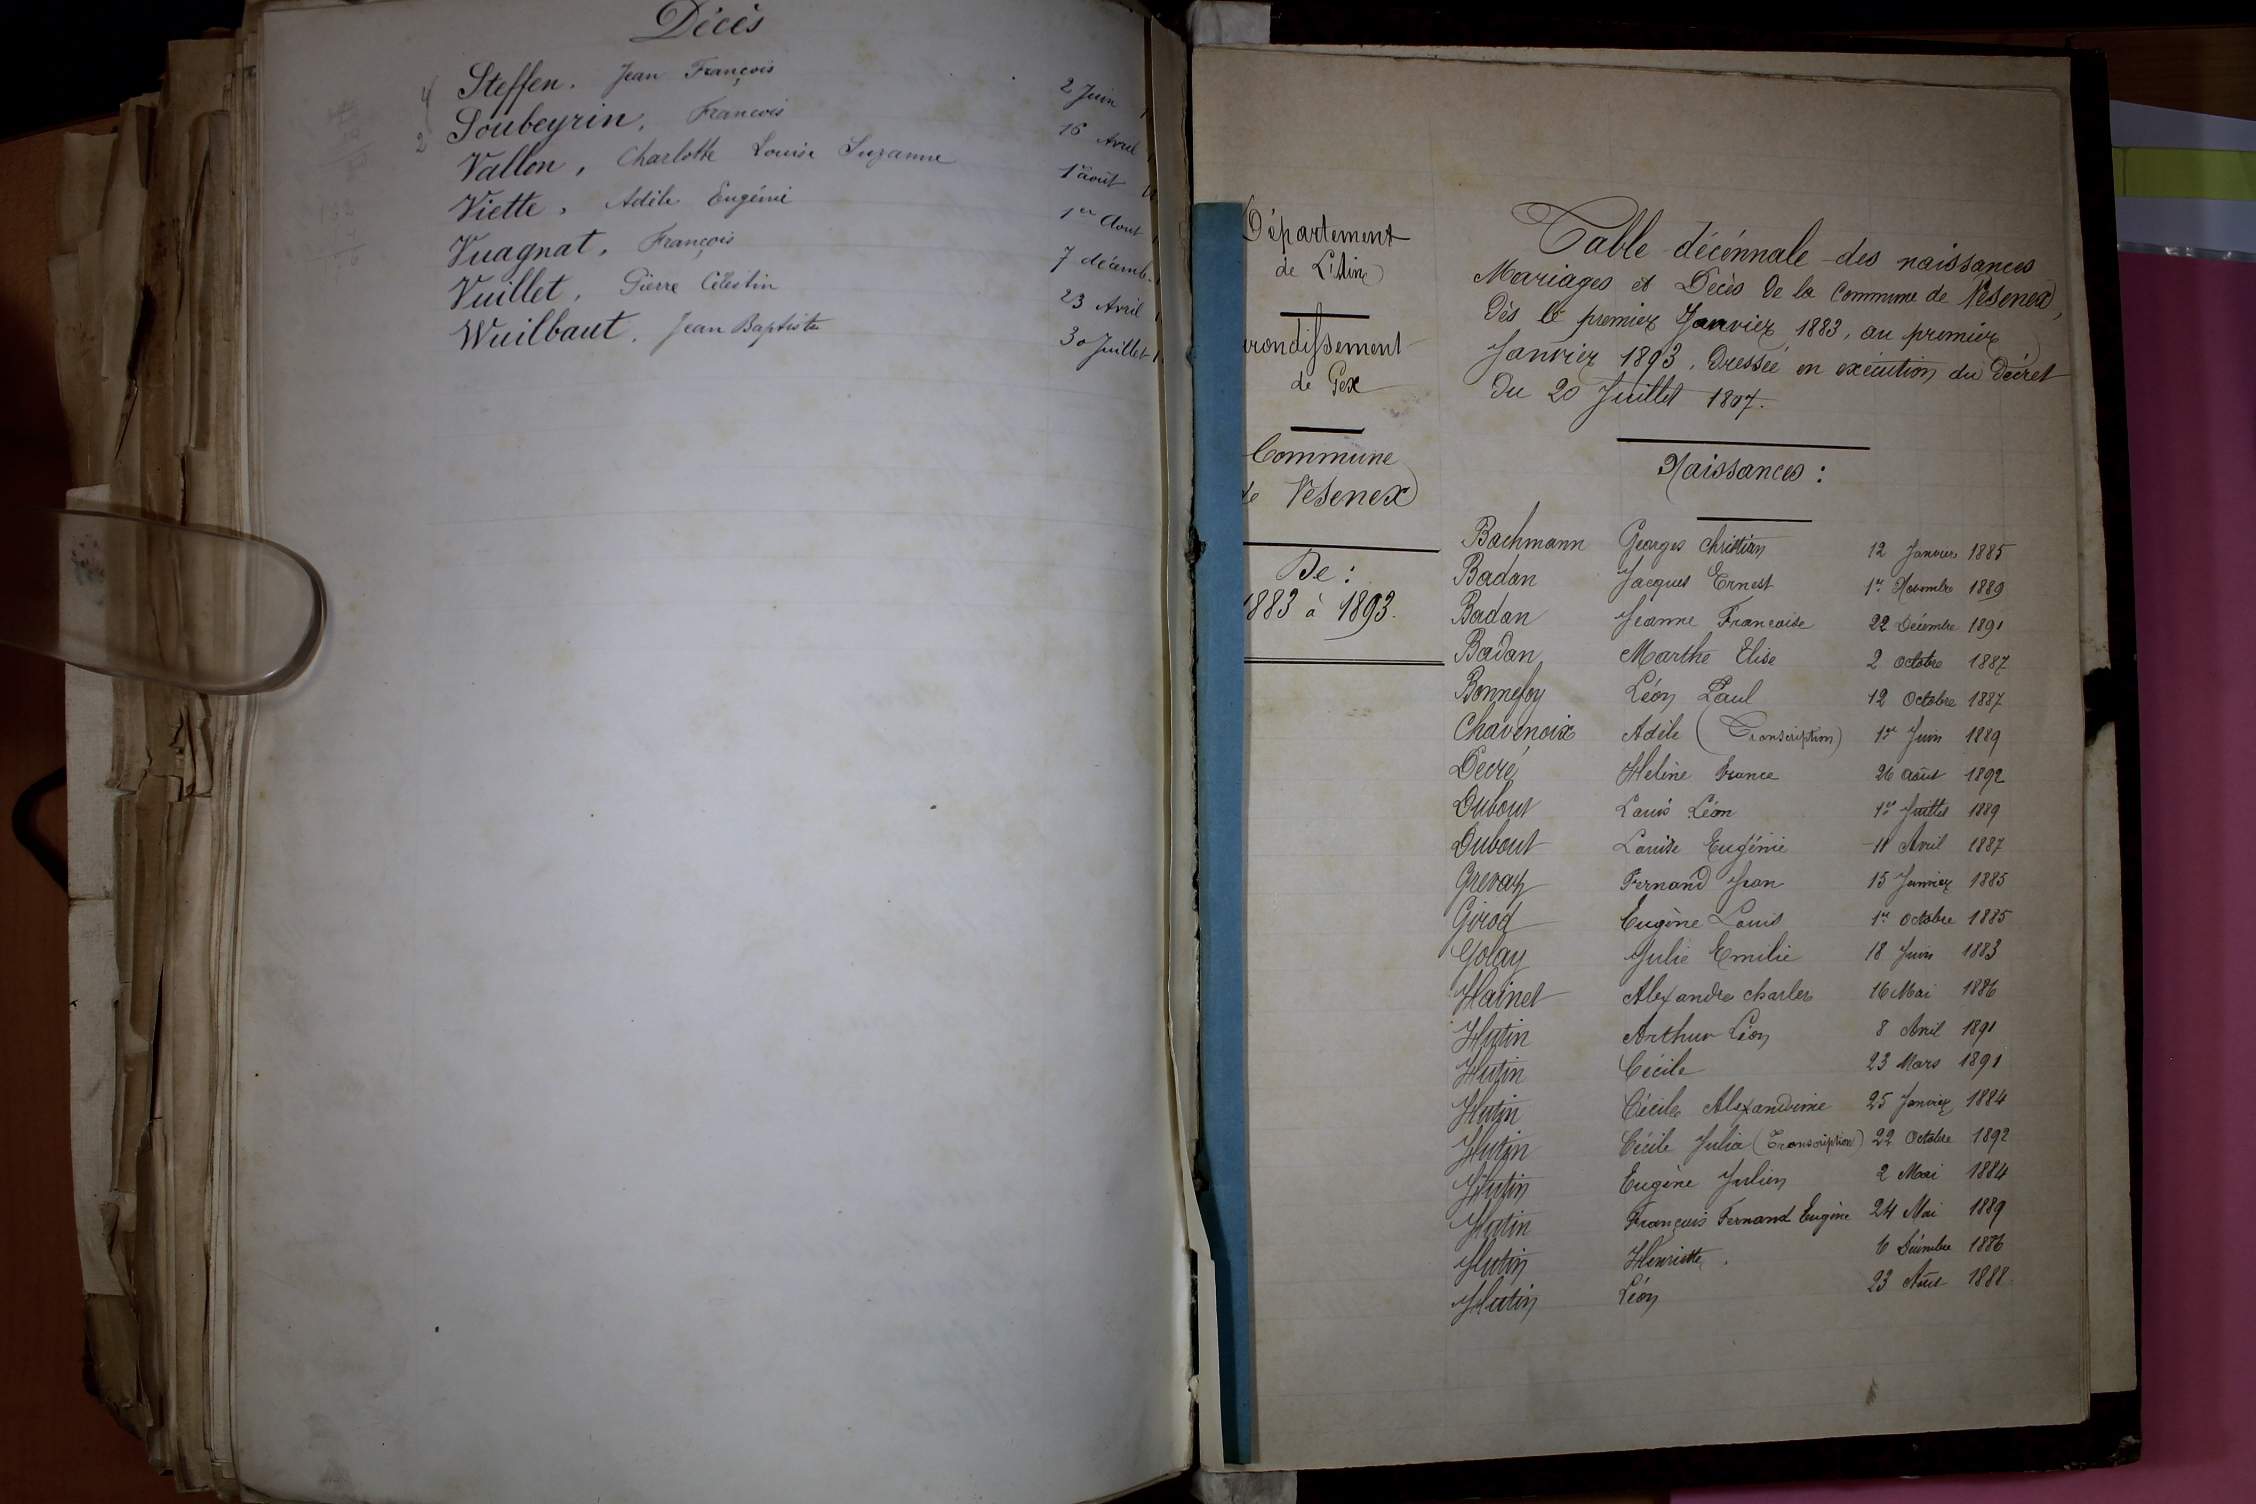 Décès
Steffen. Jean François 2 Juin
Soubeyrin, François 16 Avril
Vallon, Charlotte Louise Suzanne 1er août
Viette, Adèle Eugénie 1er Aout
Vuagnat, François 7 décemb.
Vuillet, Pierre Célestin 23 Avril
Wuilbaut, Jean Baptiste 30 Juillet
Département
de L'Ain
rondissement
de Gex
Commune
de Vesenex
De :
1883 à 1893.
Table décénnale des naissances
Mariages et Décès de la Commune de Vesenex,
Dès le premier Janvier 1883, au premier
Janvier 1893, Dressée en exécution du Décret
Du 20 Juillet 1807.
Naissances :
Bachmann Georges Christian 12 Janvier 1885
Badan Jacques Ernest 1er Novembre 1889
Badan Jeanne Francoise 22 Décembre 1891
Badan Marthe Elise 2 Octobre 1887
Bonnefoy Léon Paul 12 Octobre 1887
Chavenoix Adèle (Transcription) 1er Juin 1889
Decré Hélène France 26 Août 1892
Dubout Louis Léon 1er Juillet 1889
Dubout Louise Eugénie 11 Avril 1887
Grevay Fernand Jean 15 Janvier 1885
Girod Eugène Louis 1er Octobre 1885
Golay Julie Emilie 18 Juin 1883
Hainel Alexandre Charles 16 Mai 1886
Hutin Arthur Léon 8 Avril 1891
Hutin Cécile 23 Mars 1891
Hutin Cécile Alexandrine 25 Janvier 1884
Hutin Cécile Julia (Transcription) 22 Octobre 1892
Hutin Eugène Julien 2 Mai 1884
Hutin François Fernand Eugène 24 Mai 1889
Hutin Henriette. 6 Décembre 1886
Hutin Léon 23 Août 1888